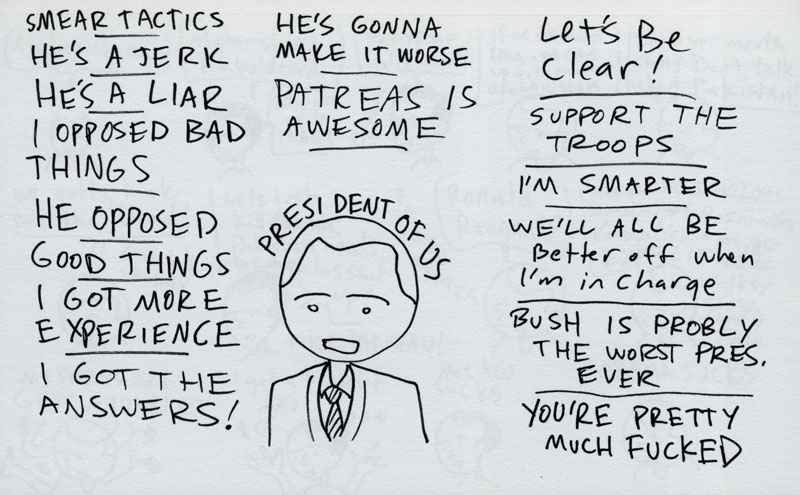 SMEAR TACTICS
HE'S A JERK
HE'S A LIAR
I OPPOSED BAD
THINGS
HE OPPOSED
GOOD THINGS
I GOT MORE
EXPERIENCE
I GOT THE
ANSWERS!
HE'S GONNA
MAKE IT WORSE
PATREAS IS
AWESOME
PRESIDENT OF US
Let's Be
Clear!
SUPPORT THE
TROOPS
I'M SMARTER
WE'LL ALL BE
Better off when
I'm in Charge
BUSH IS PROBLY
THE WORST PRES.
EVER
YOU'RE PRETTY
MUCH FUCKED